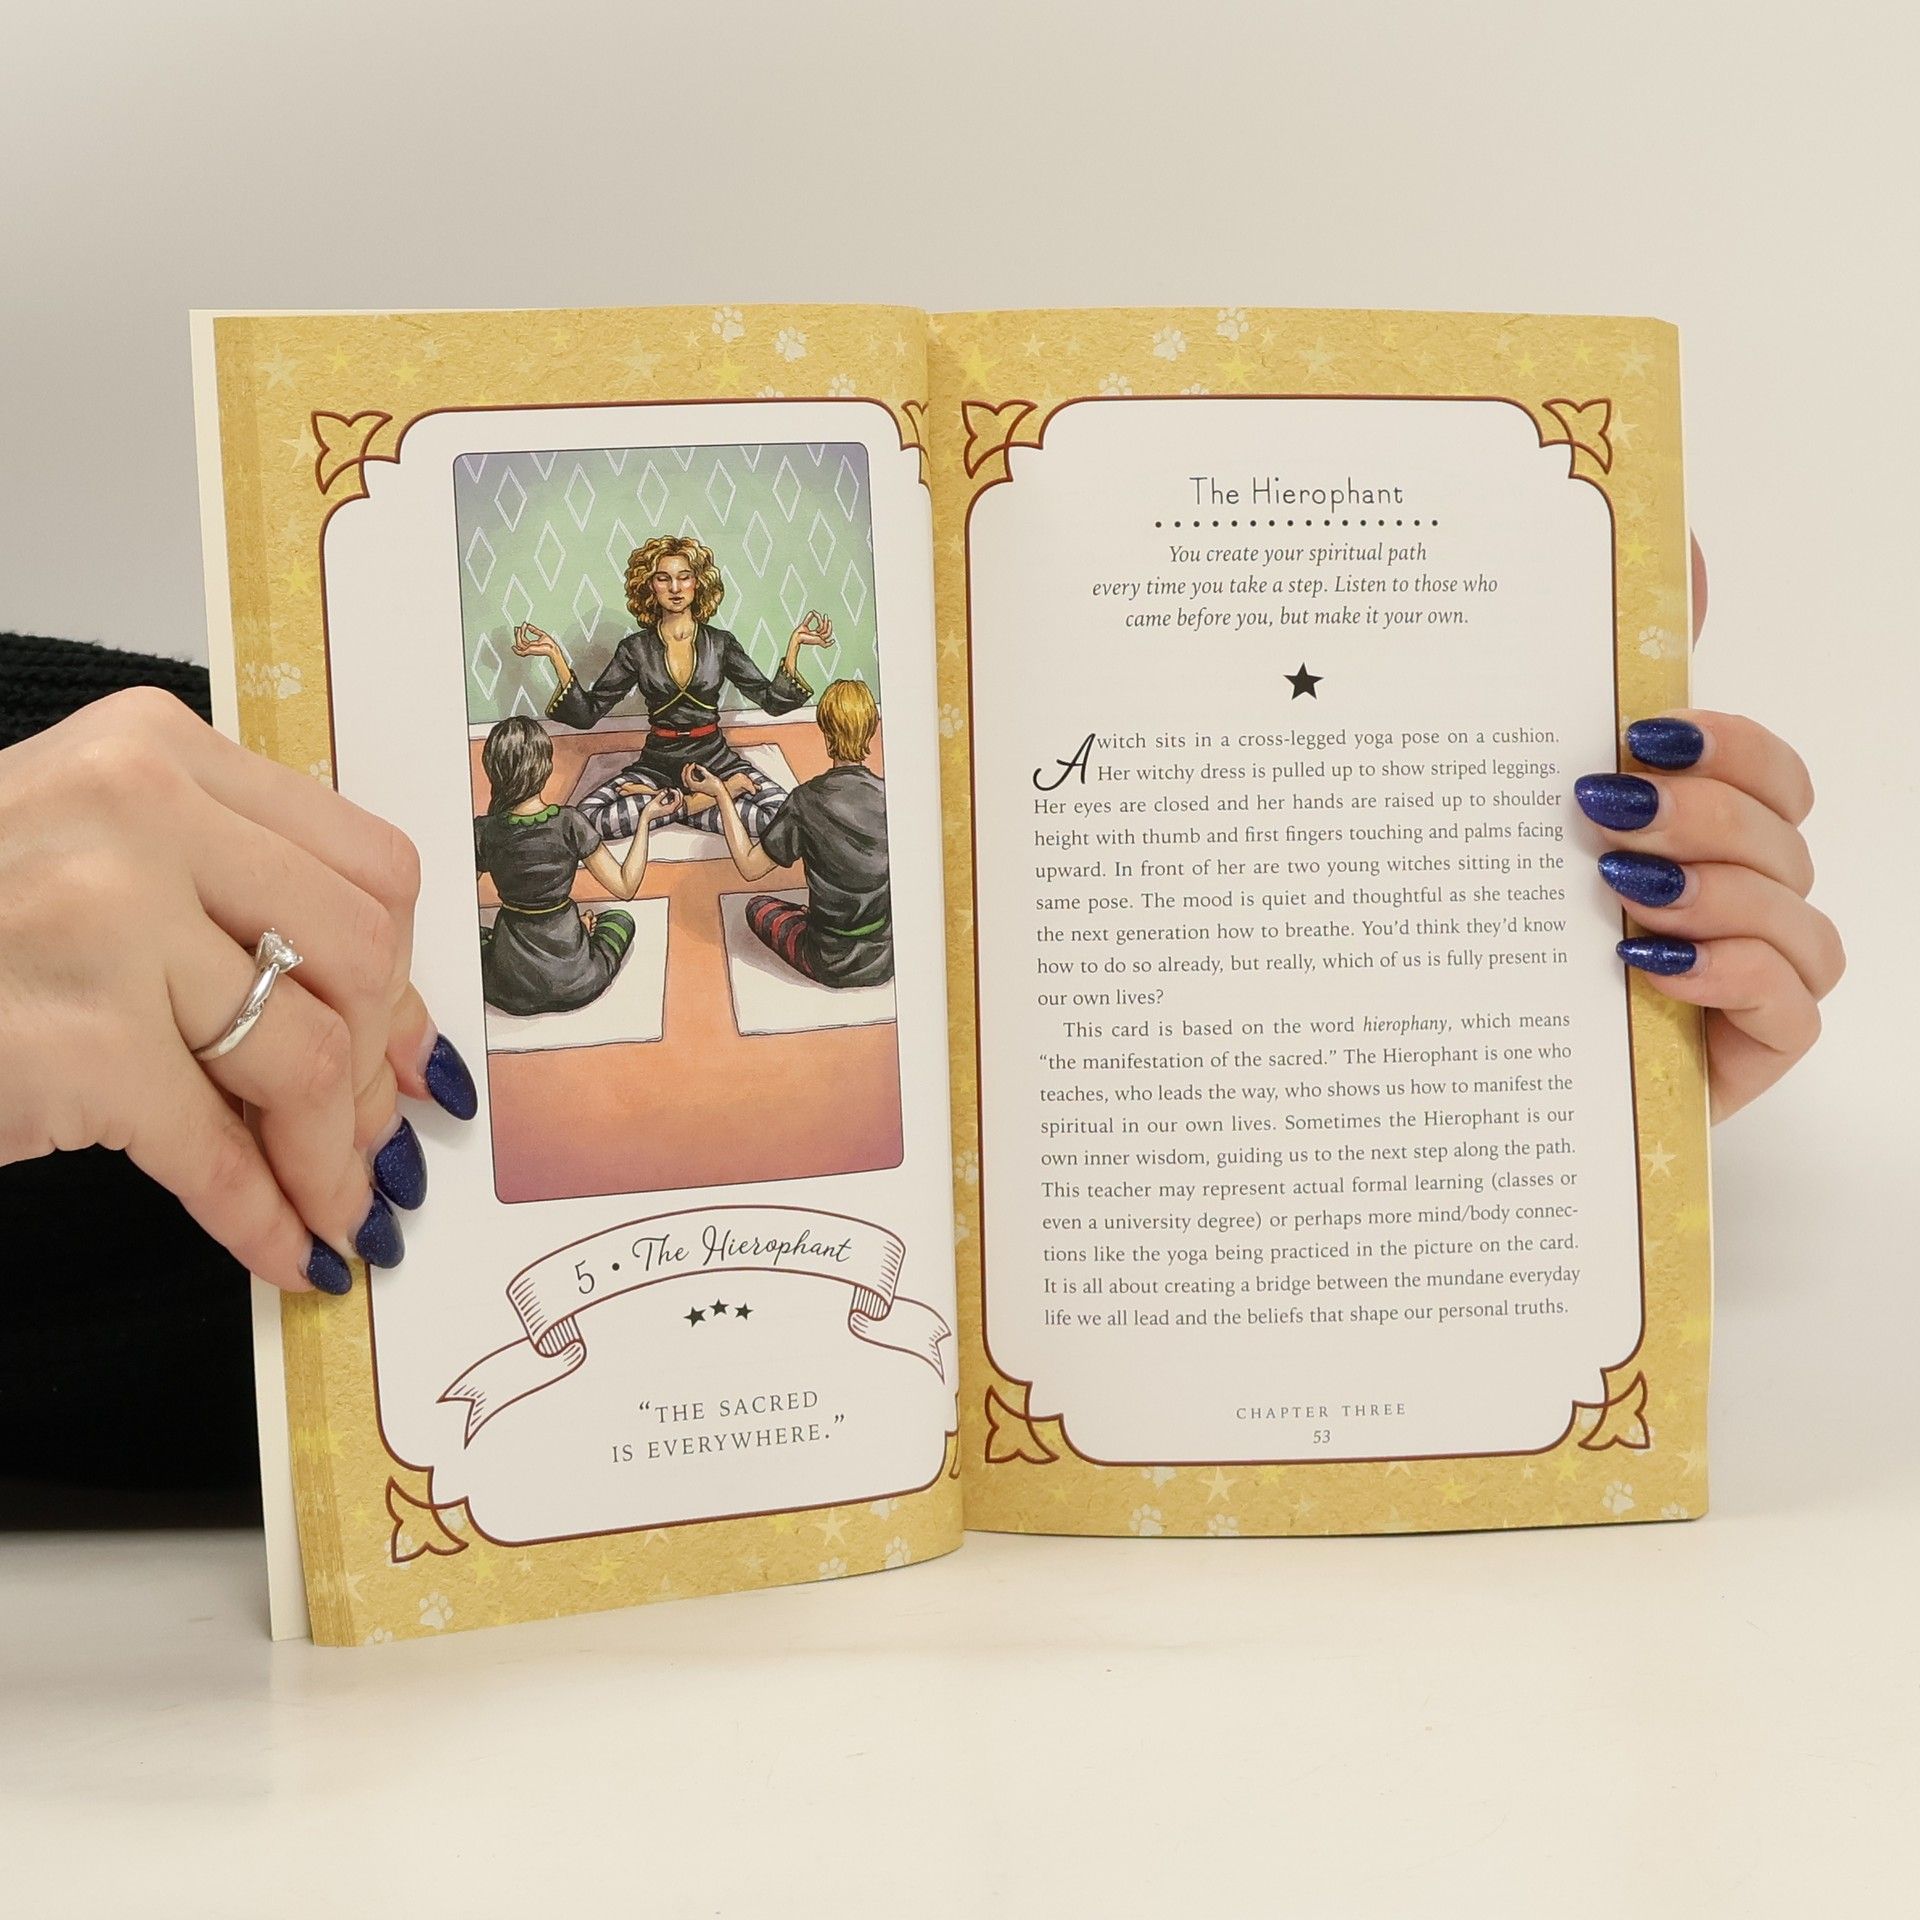 5 • The Hierophant
“THE SACRED
IS EVERYWHERE.”
The Hierophant
You create your spiritual path
every time you take a step. Listen to those who
came before you, but make it your own.
A witch sits in a cross-legged yoga pose on a cushion.
Her witchy dress is pulled up to show striped leggings.
Her eyes are closed and her hands are raised up to shoulder
height with thumb and first fingers touching and palms facing
upward. In front of her are two young witches sitting in the
same pose. The mood is quiet and thoughtful as she teaches
the next generation how to breathe. You’d think they’d know
how to do so already, but really, which of us is fully present in
our own lives?
This card is based on the word hierophany, which means
“the manifestation of the sacred.” The Hierophant is one who
teaches, who leads the way, who shows us how to manifest the
spiritual in our own lives. Sometimes the Hierophant is our
own inner wisdom, guiding us to the next step along the path.
This teacher may represent actual formal learning (classes or
even a university degree) or perhaps more mind/body connec-
tions like the yoga being practiced in the picture on the card.
It is all about creating a bridge between the mundane everyday
life we all lead and the beliefs that shape our personal truths.
CHAPTER THREE
53